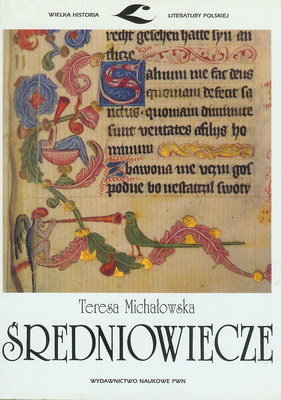 WIELKA HISTORIA LITERATURY POLSKIEJ
recht geschen hatte lyn an
thcze
Saluum me fac deus
quoniam defecit sa
nctus · quoniam diminute
sunt ueritates a filijs ho
minum
Zbawona me vczin gos
podne bo
Teresa Michałowska
ŚREDNIOWIECZE
WYDAWNICTWO NAUKOWE PWN